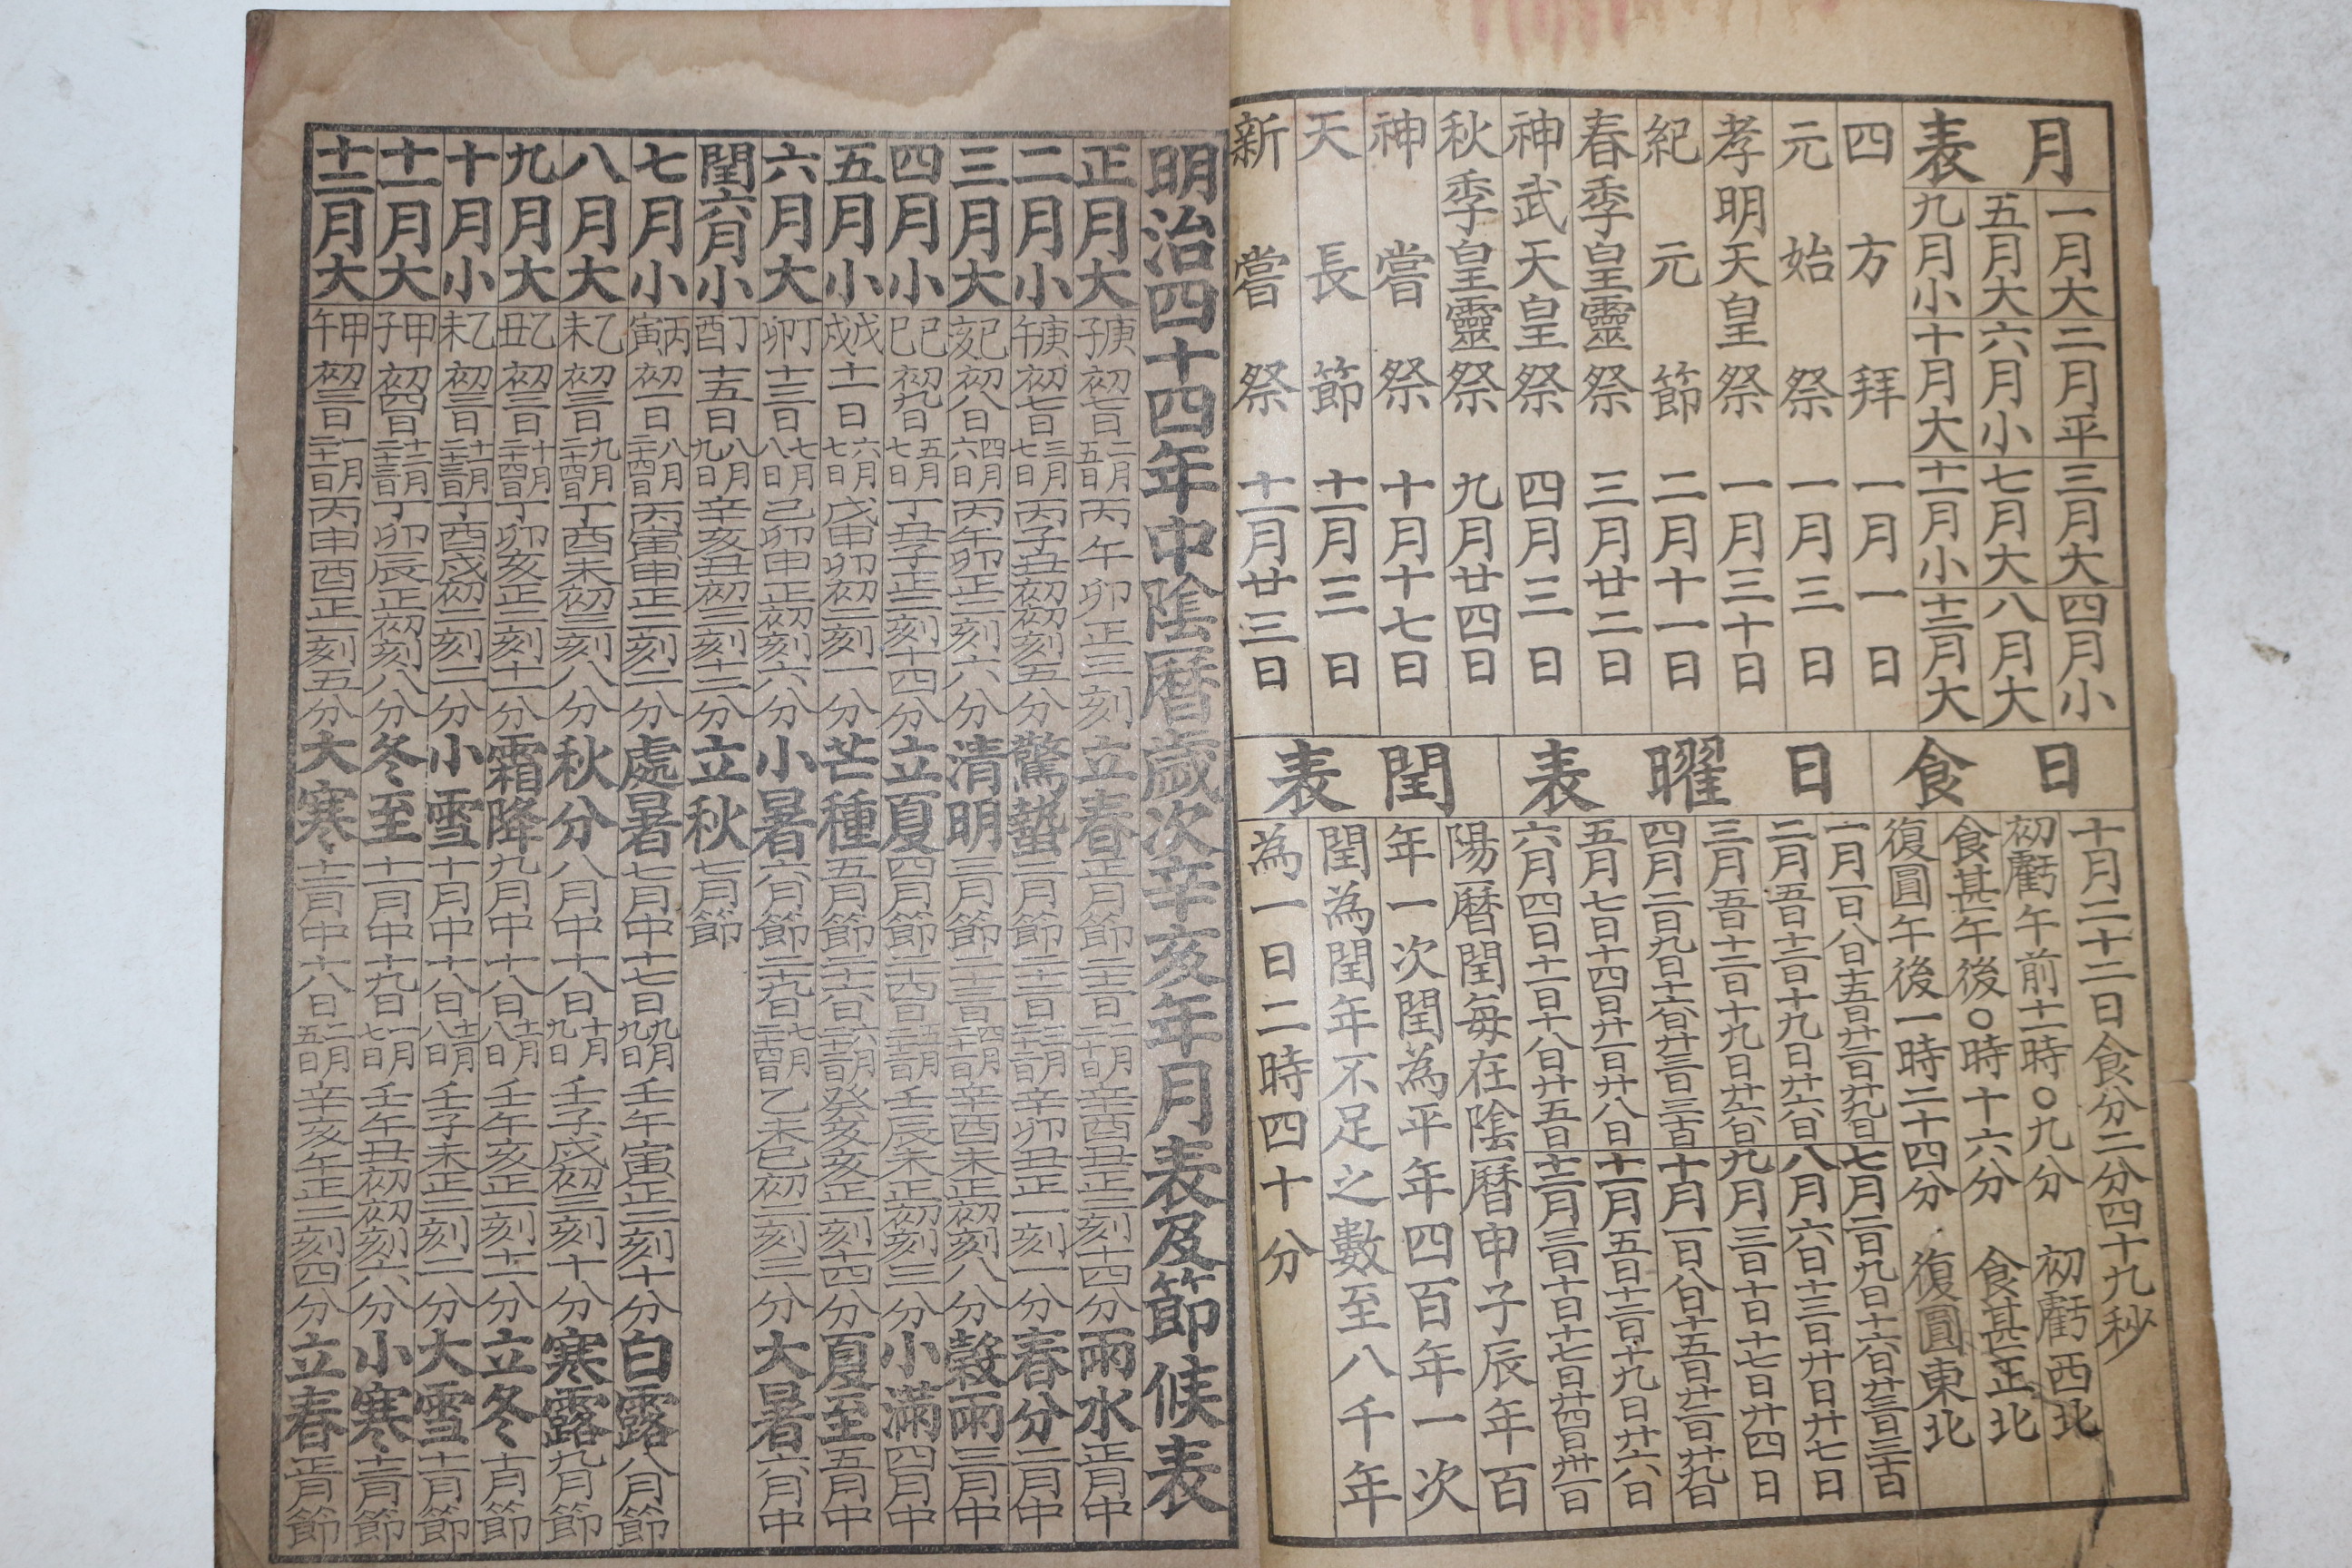 月表
一月大 二月平 三月大 四月小
五月大 六月小 七月大 八月大
九月小 十月大 十一月小 十二月大
四方拜 一月一日
元始祭 一月三日
孝明天皇祭 一月三十日
紀元節 二月十一日
春季皇靈祭 三月廿二日
神武天皇祭 四月三日
秋季皇靈祭 九月廿四日
神嘗祭 十月十七日
天長節 十一月三日
新嘗祭 十一月廿三日
日食
十月二十二日食分二分四十九秒
初虧午前十一時〇九分 初虧西北
食甚午後〇時十六分 食甚正北
復圓午後一時二十四分 復圓東北
日曜表
一月一日八日十五日廿二日廿九日 七月二日九日十六日廿三日三十日
二月五日十二日十九日廿六日 八月六日十三日廿日廿七日
三月五日十二日十九日廿六日 九月三日十日十七日廿四日
四月二日九日十六日廿三日三十日 十月一日八日十五日廿二日廿九日
五月七日十四日廿一日廿八日 十一月五日十二日十九日廿六日
六月四日十一日十八日廿五日 十二月三日十日十七日廿四日卅一日
閏表
陽曆閏每在陰曆申子辰年百
年一次閏為平年四百年一次
閏為閏年不足之數至八千年
為一日二時四十分
明治四十四年中陰曆歲次辛亥年月表及節候表
正月大 庚子 初七日 二月五日 丙午卯正三刻 立春 正月節 二十二日 二月二十日 辛酉丑正三刻十四分 雨水 正月中
二月小 庚午 初七日 三月七日 丙子丑初初刻五分 驚蟄 二月節 二十二日 三月二十二日 辛卯丑正一刻一分 春分 二月中
三月大 己亥 初八日 四月六日 丙午卯正二刻六分 清明 三月節 二十三日 四月二十一日 辛酉未正初刻八分 穀雨 三月中
四月小 己巳 初九日 五月七日 丁丑子正二刻十四分 立夏 四月節 二十四日 五月二十二日 壬辰未正初刻三分 小滿 四月中
五月小 戊戌 十一日 六月七日 戊申卯初二刻一分 芒種 五月節 二十六日 六月二十二日 癸亥亥正一刻十四分 夏至 五月中
六月大 丁卯 十三日 七月八日 己卯申正初刻六分 小暑 六月節 二十九日 七月二十四日 乙未巳初二刻三分 大暑 六月中
閏六月小 丁酉 十五日 八月九日 辛亥丑初三刻十二分 立秋 七月節
七月小 丙寅 初一日 八月二十四日 丙寅申正二刻二分 處暑 七月中 十七日 九月九日 壬午寅正二刻十分 白露 八月節
八月大 乙未 初三日 九月二十四日 丁酉未初三刻八分 秋分 八月中 十八日 十月九日 壬子戌初三刻十分 寒露 九月節
九月大 乙丑 初三日 十月二十四日 丁卯亥正二刻十一分 霜降 九月中 十八日 十一月八日 壬午亥正二刻十一分 立冬 十月節
十月小 乙未 初三日 十一月二十三日 丁酉戌初二刻二分 小雪 十月中 十八日 十二月八日 壬子未正三刻二分 大雪 十一月節
十一月大 甲子 初四日 十二月二十三日 丁卯辰正初刻八分 冬至 十一月中 十九日 一月七日 壬午丑初初刻六分 小寒 十二月節
十二月大 甲午 初三日 一月二十一日 丙申酉正一刻五分 大寒 十二月中 十八日 二月五日 辛亥午正二刻四分 立春 正月節